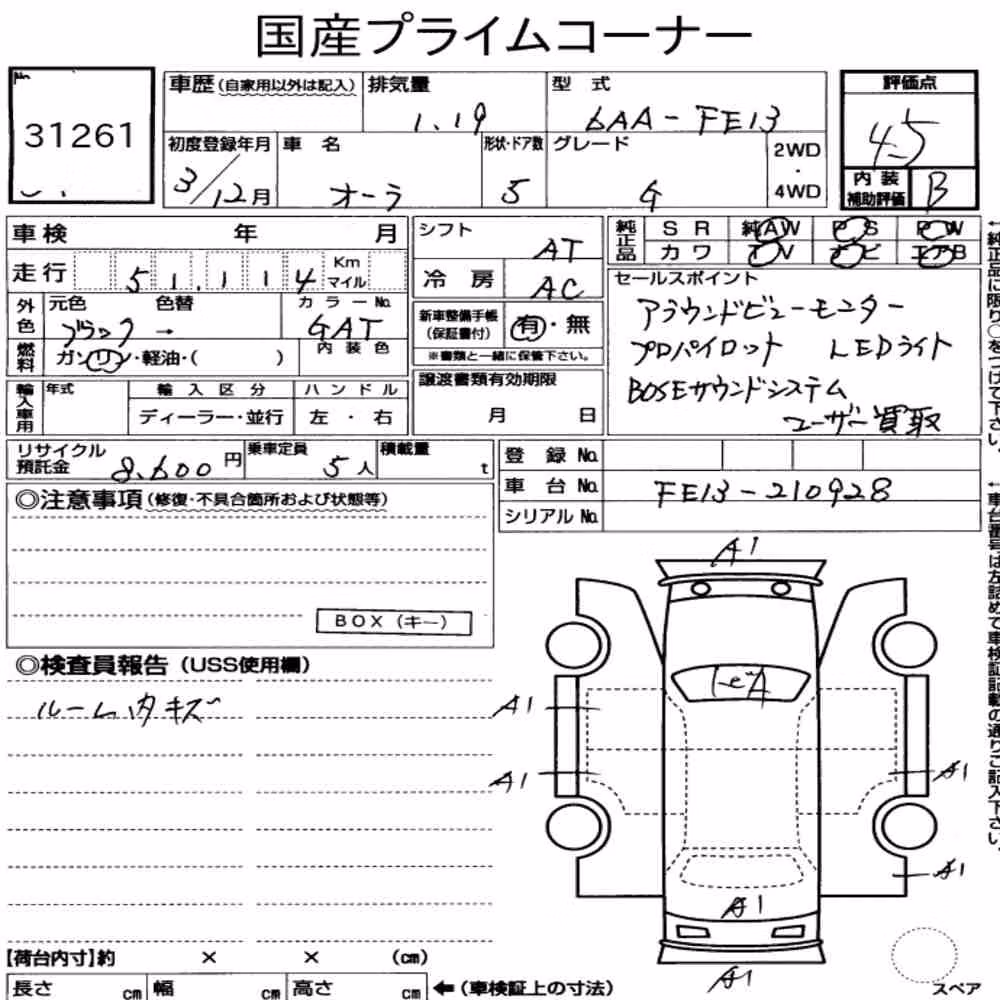 国産プライムコーナー
No.
31261
車歴(自家用以外は記入)
排気量
1.19
型 式
6AA-FE13
評価点
4.5
内装補助評価
B
初度登録年月
3/12月
車 名
オーラ
形状・ドア数
5
グレード
G
2WD
・
4WD
車検 年 月
走行 51,114 Km マイル
外色 元色 色替 カラーNo.
ブラック → GAT
燃料 ガソリン・軽油・( )
内装色
輸入車用 年式 輸入区分 ハンドル
ディーラー・並行 左・右
シフト
AT
冷 房
AC
新車整備手帳(保証書付) 有・無
※書類と一緒に保管下さい。
譲渡書類有効期限
月 日
純正品 SR 純AW PS PW
カワ TV ナビ エアB
セールスポイント
アラウンドビューモニター
プロパイロット LEDライト
BOSEサウンドシステム
ユーザー買取
←純正品に限り○をつけて下さい。
リサイクル預託金 8,600円
乗車定員 5人
積載量 t
登 録 No.
車 台 No. FE13-210928
シリアル No.
←車台番号は左詰めで車検証記載の通りご記入下さい。
◎注意事項(修復・不具合箇所および状態等)
BOX(キー)
◎検査員報告(USS使用欄)
ルーム内キズ
A1
A1
A1
A1
A1
A1
A1
【荷台内寸】約 × × (cm)
長さ cm 幅 cm 高さ cm ←(車検証上の寸法)
スペア